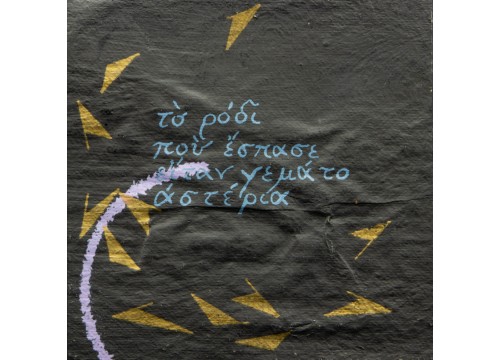 τὸ ρόδι
ποὺ ἔσπασε
ἦταν γεμάτο
ἀστέρια